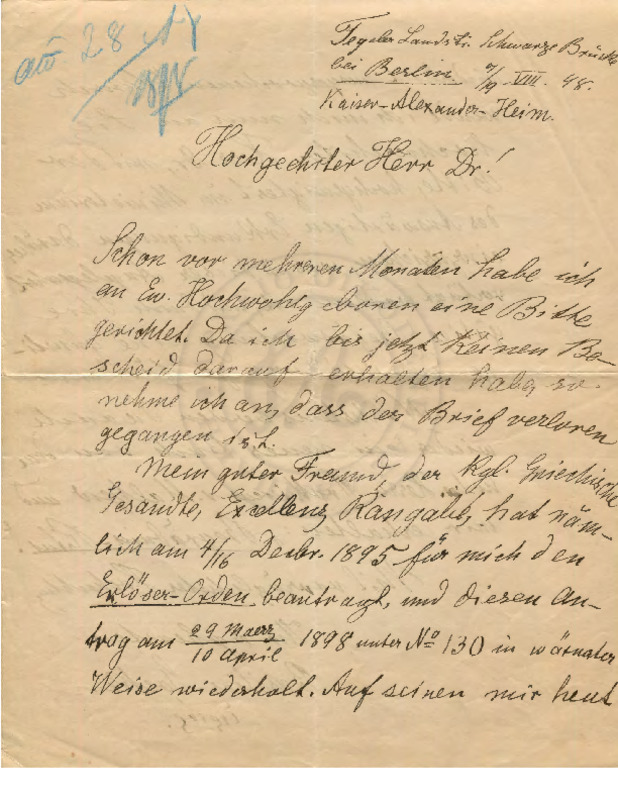 28
Tegeler Landstr. Schwarze Brücke
bei Berlin VIII. 98.
Kaiser-Alexander-Heim.
Hochgeehrter Herr Dr!
Schon vor mehreren Monaten habe ich
an Ew. Hochwohlgeboren eine Bitte
gerichtet. Da ich bis jetzt keinen Be-
scheid darauf erhalten habe, so
nehme ich an, dass der Brief verloren
gegangen ist.
Mein guter Freund, der Kgl. Griechische
Gesandte, Excellenz Rangabé, hat näm-
lich am 4/16 Decbr. 1895 für mich den
Erlöser-Orden beantragt, und diesen An-
trag am 29 Maerz / 10 April 1898 unter No 130 in wärmster
Weise wiederholt. Auf seinen mir heut